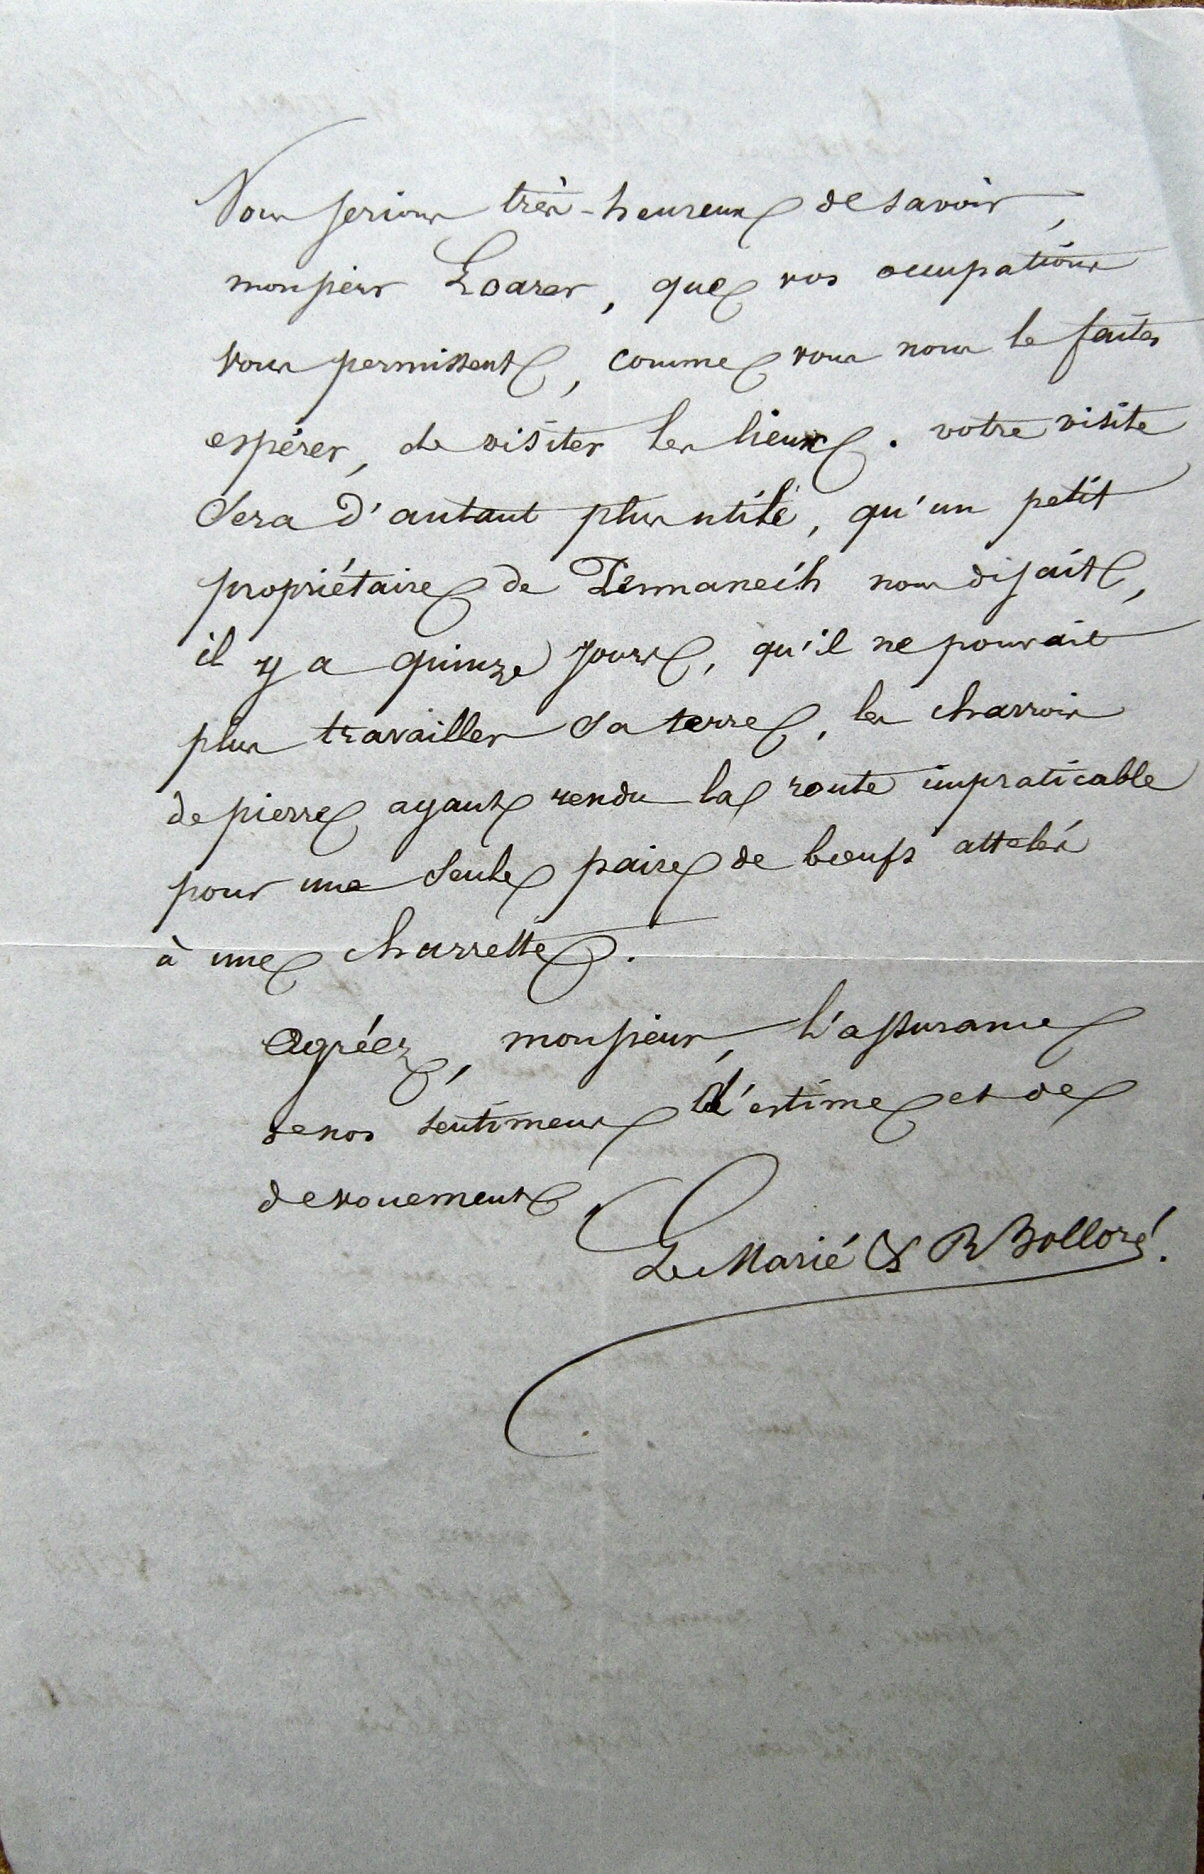 Nous serions très-heureux de savoir,
monsieur Loarer, que vos occupations
vous permissent, comme vous nous le faites
espérer, de visiter les lieux. votre visite
sera d'autant plus utile, qu'un petit
propriétaire de nous disait,
il y a quinze jours, qu'il ne pouvait
plus travailler sa terre, les charrois
de pierre ayant rendu la route impraticable
pour une seule paire de bœufs attelés
à une charrette.
Agréez, monsieur, l'assurance
de nos sentimens d'estime et de
devouement.
Le Marié & R Bolloré.